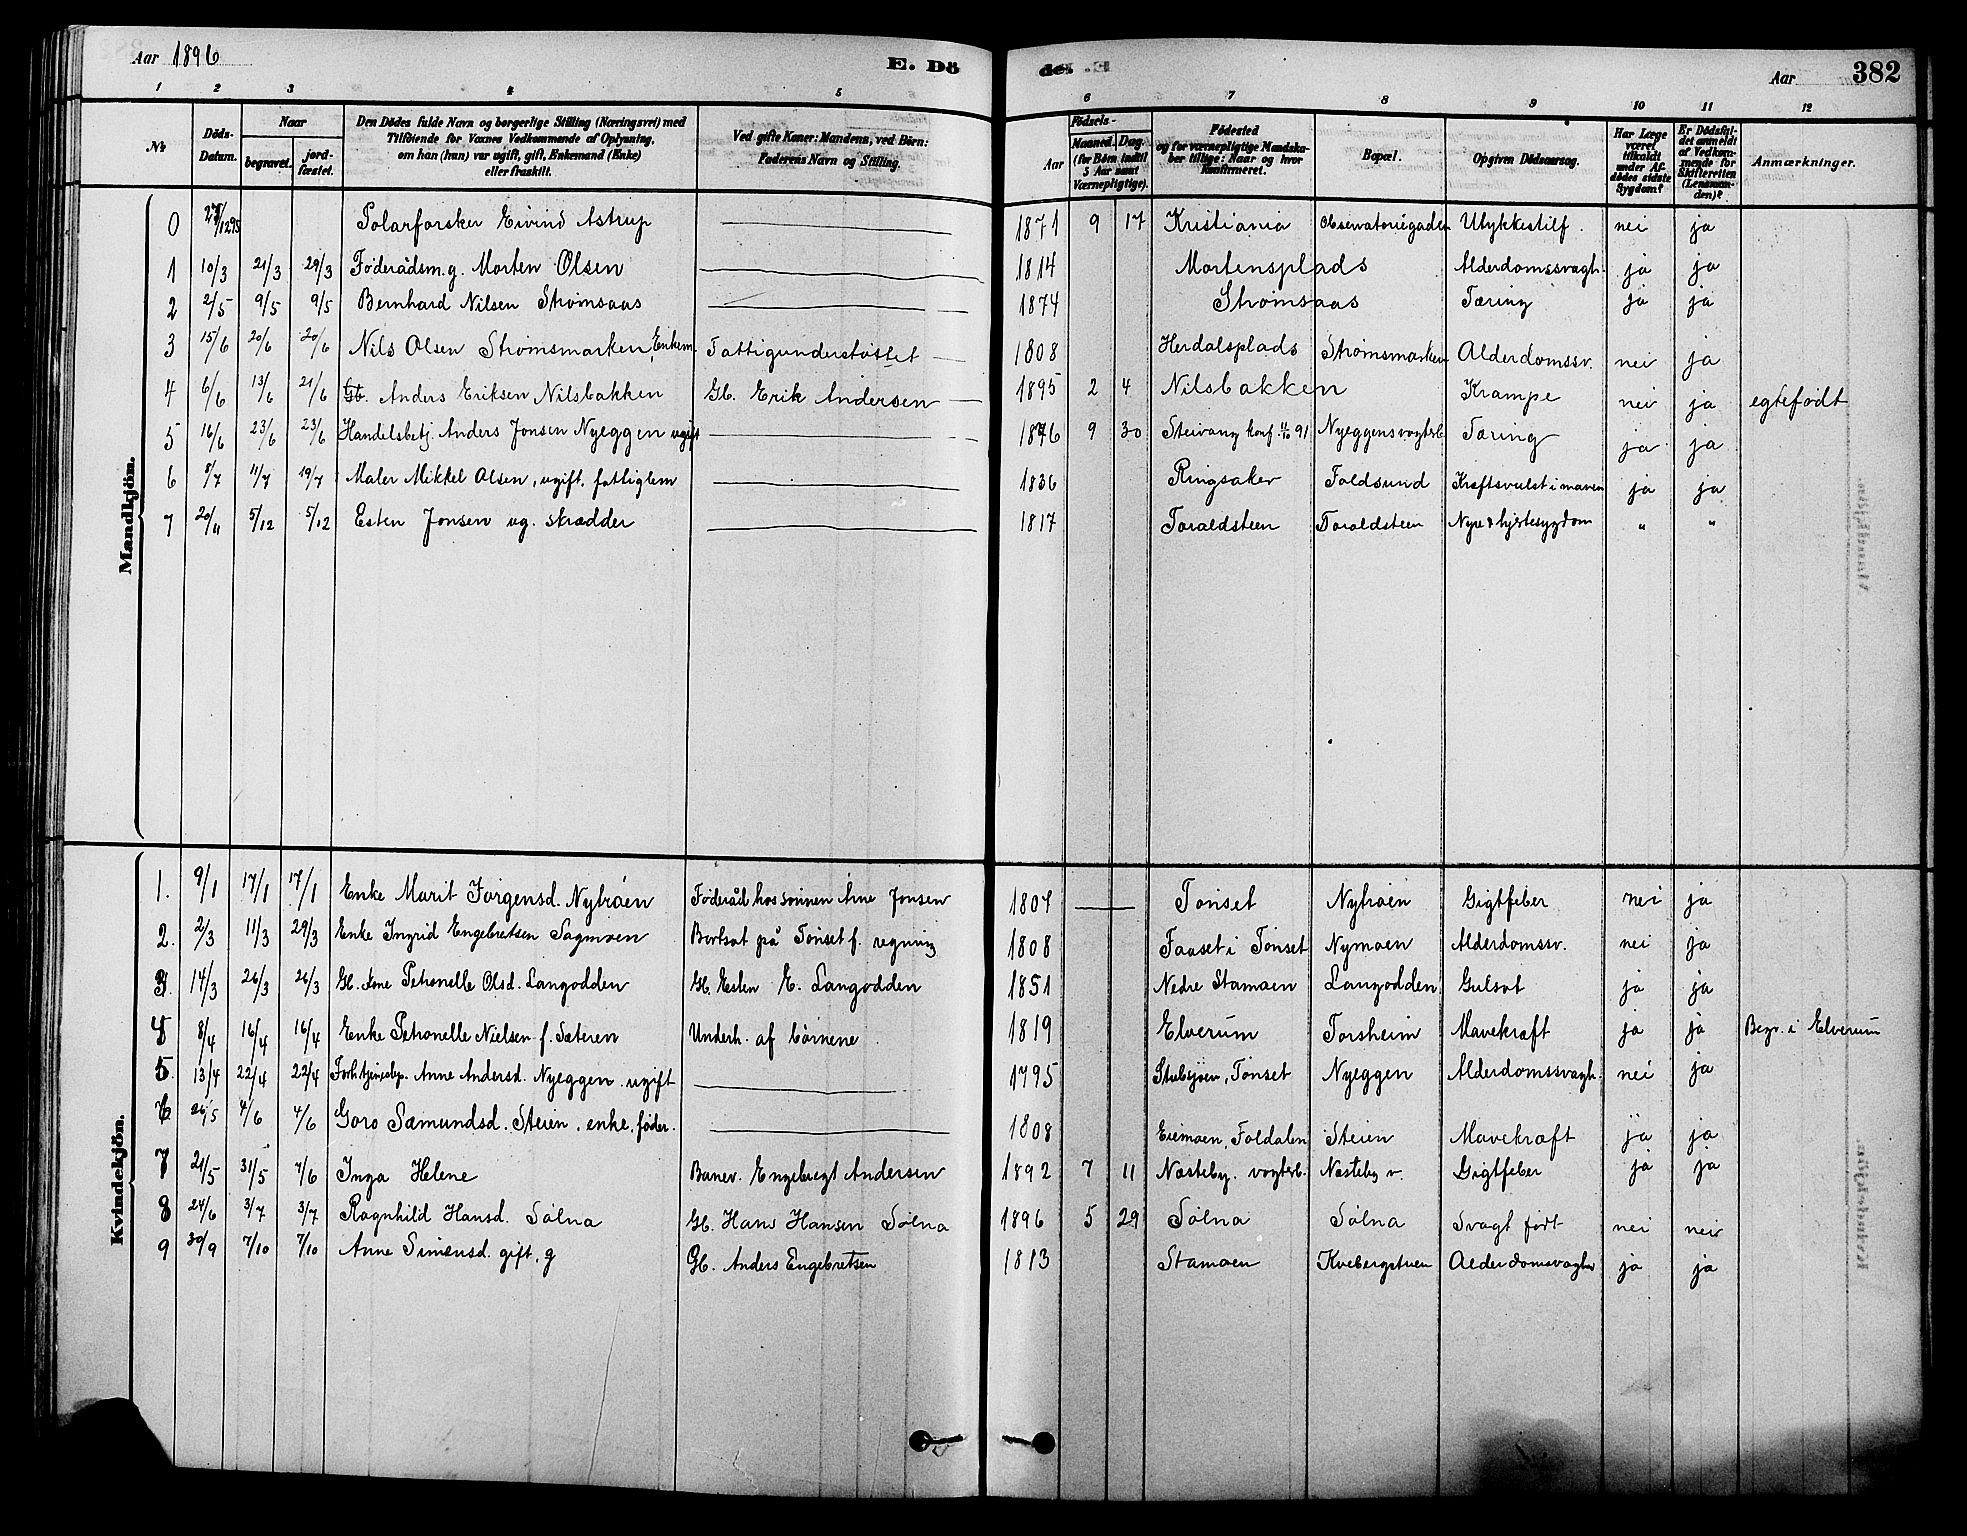 Aar 1896
E. Dö
de.
Aar
382
1 2 3 4 5 6 7 8 9 10 11 12
No
Döds-Datum.
Naar
begravet.
jord-fæstet.
Den Dödes fulde Navn og borgerlige Stilling (Næringsvei) med
Tilföiende for Voxnes Vedkommende af Oplysning,
om han (hun) var ugift, gift, Enkemand (Enke)
eller fraskilt.
Ved gifte Koner: Mandens, ved Börn:
Faderens Navn og Stilling.
Födsels-
Aar
Maaned. Dag.
(for Börn indtil
5 Aar samt
Værnepligtige).
Födested
og for værnepligtige Mandska-
ber tillige: Naar og hvor
konfirmeret.
Bopæl.
Opgiven Dödsaarsag.
Har Læge
været
tilkaldt
under Af-
dödes sidste
Sygdom?
Er Dödsfal-
det anmeldt
af Vedkom-
mende for
Skifteretten
(Lensman-
den)?
Anmærkninger.
Mandkjön.
0 27/12 95 Polarforsker Eivind Astrup 1871 9 17 Kristiania Observatoriegaden Ulykkestilf. nei ja
1 10/3 21/3 29/3 Føderådsm. g. Morten Olsen 1814 Mortensplads Alderdomssvagh. ja ja
2 2/5 9/5 9/5 Bernhard Nilsen Strømsaas 1874 Strømsaas Tæring ja ja
3 15/6 20/6 20/6 Nils Olsen Strømsmarken, Enkem. Fattigunderstøttet 1808 Herdalsplads Strømsmarken Alderdomssv. nei ja
4 6/6 13/6 21/6 Gb. Anders Eriksen Nilsbakken Gb. Erik Andersen 1895 2 4 Nilsbakken Krampe nei ja egtefødt
5 16/6 23/6 23/6 Handelsbetj. Anders Jonsen Nyeggen ugift 1876 9 30 Steivang konf. 91 Nyeggens vogterb. Tæring ja ja
6 8/7 11/7 19/7 Maler Mikkel Olsen, ugift. fattiglem 1836 Ringsaker Foldsund Kræftsvulst i maven ja ja
7 20/11 5/12 5/12 Esten Jonsen ug. skrædder 1817 Toraldsteen Toraldsteen Nyre & hjertesygdom " "
Kvindekjön.
1. 9/1 17/1 17/1 Enke Marit Jørgensd. Nytrøen Føderåd hos sønnen Arne Jonsen 1804 Tønset Nytrøen Gigtfeber nei ja
2. 2/3 11/3 29/3 Enke Ingrid Engebretsen Sagmoen Bortsat på Tønset f. regning 1808 Faaset i Tønset Nymoen Alderdomssv. nei ja
3. 14/3 26/3 26/3 Gb. kone Petronelle Olsd. Langodden Gb. Esten E. Langodden 1851 Nedre Stamoen Langodden Gulsot ja ja
4 8/4 16/4 16/4 Enke Petronelle Nielsen f. Sæteren Underh. af børnene 1819 Elverum Forsheim Mavekræft ja ja Begr. i Elverum
5 13/4 22/4 22/4 Anne Andersd. Nyeggen. ugift 1795 Stubsjøen, Tønset Nyeggen Alderdomssvagh. nei ja
6 26/5 4/6 4/6 Goro Samundsd. Steien. enke, føder. 1808 Eiemoen, Foldalen Steien Mavekræft ja ja
7 21/5 31/5 7/6 Inga Helene Banev. Engebregt Andersen 1892 7 11 Næsteby. vogterb. Næsteby v. Gigtfeber ja ja
8 24/6 3/7 3/7 Ragnhild Hansd. Sølna Gb. Hans Hansen Sølna 1896 5 29 Sølna Sølna Svagt født nei nei
9 30/9 7/10 7/10 Anne Simensd. gift, g Gb. Anders Engebretsen 1813 Stamoen Kvebergstuen Alderdomsvaghed ja ja